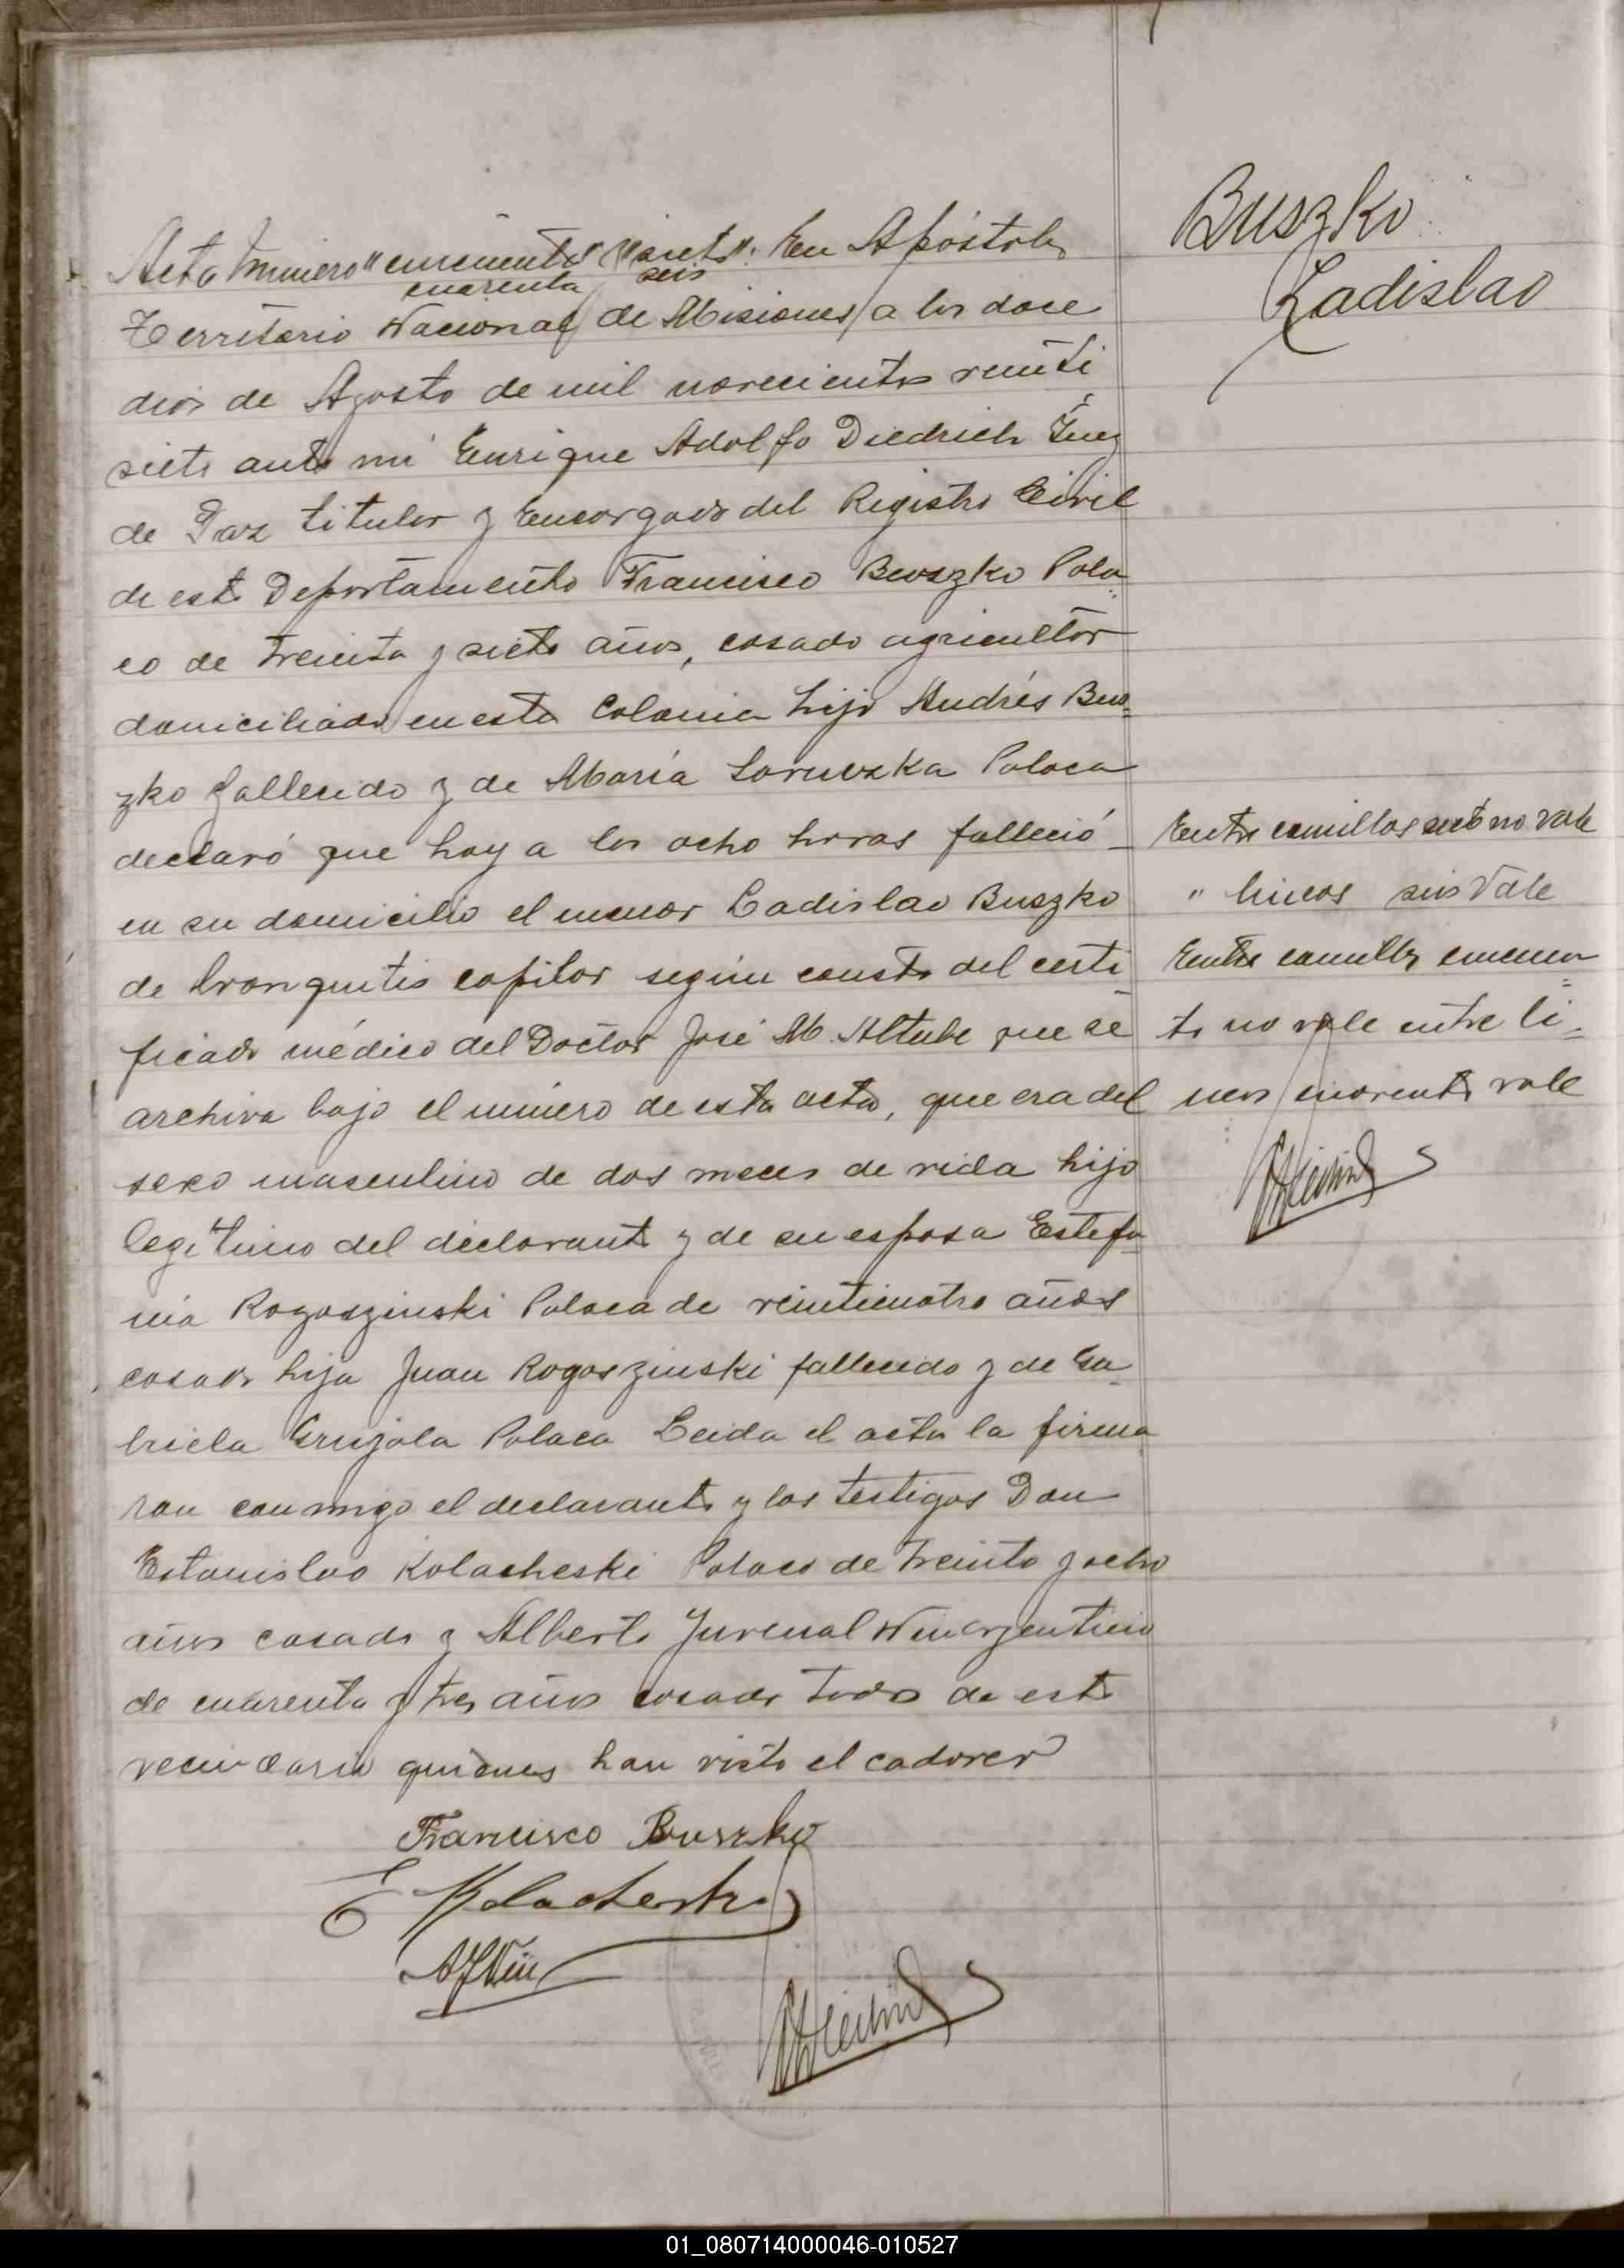 Buszko
Ladislao
Acta Número "cincuenta" y "siete". En Apóstoles
cuarenta seis
Territorio Nacional de Misiones, a los doce
dias de Agosto de mil novecientos veinti
siete ante mi Enrique Adolfo Diedrich Juez
de Paz titular y Encargado del Registro Civil
de este Departamento Francisco Buszko Pola
co de treinta y siete años, casado agricultor
domiciliado en esta Colonia hijo Andrés Bus
zko fallecido y de María Polaca
declaró que hoy a las ocho horas falleció
en su domicilio el menor Ladislao Buszko
de bronquitis capilar según consta del certi
ficado médico del Doctor José M. Altube que se
archiva bajo el número de esta acta, que era del
sexo masculino de dos meces de vida hijo
legítimo del declarante y de su esposa Estefa
nia Rogoszinski Polaca de veinticuatro años
casada hija Juan Rogoszinski fallecido y de Ga
briela Polaca Leida el acta la firma
ron conmigo el declarante y los testigos Don
Estanislao Kolacheski Polaco de treinta y ocho
años casado y Alberto Juvenal argentino
de cuarenta y tres años casado todos de este
vecindario quienes han visto el cadaver
Francisco Buszko
E Kolacheski
Entre comillas siete no vale
" lineas seis Vale
Entre comillas cincuen
ta no vale entre li=
neas cuarenta vale
01_080714000046-010527